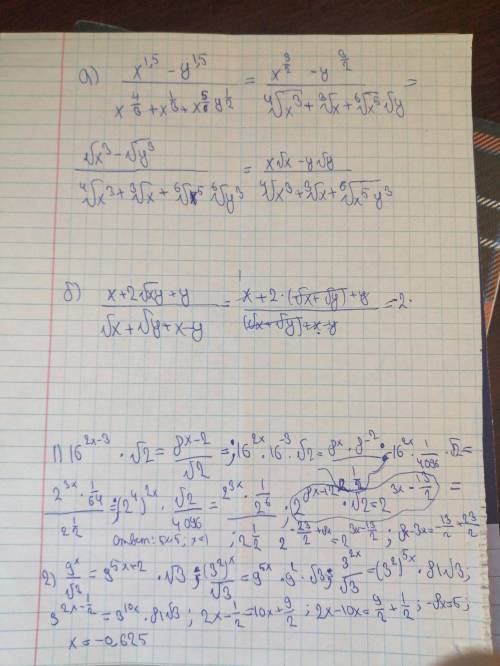 а) (x^{1,5} - y^{1,5}) / (x^{4/6} + x^{1/3} + x^{5/6} y^{1/2}) = (x^{3/2} - y^{9/2}) / (⁴√x³ + ³√x + ⁶√x⁵ √y) =
(√x³ - √y³) / (⁴√x³ + ³√x + ⁶√x⁵ ⁶√y³) = (x√x - y√y) / (⁴√x³ + ³√x + ⁶√x⁵y³)
б) (x + 2√xy + y) / (√x + √y + x - y) = (x + 2·(√x + √y) + y) / ((√x + √y) + x - y) = 2·
1) 16^{2x-3} · √2 = 8^{x-2} / √2 = ; 16^{2x} · 16^{-3} √2 = 8^x · 8^{-2} ; 16^{2x} · 1/4096 · √2 =
2^{3x} · 1/64 / 2^{1/2} = ; (2^4)^{2x} · √2/4096 = 2^{3x} · 1/2^6 / 2^{1/2} ; 2^{8x-12} · √2 = 2^{3x - 13/2} =
ответ: 5x5, x=1 ; 2^{-23/2 + 8x} = 2^{3x - 13/2} ; 8x-3x = -13/2 + 23/2
2) 9^x / √3 = 9^{5x+2} · √3 ; (3²)^x / √3 = 9^{5x} · 9² · √3 ; 3^{2x} / √3 = (3²)^{5x} · 81√3 ;
3^{2x - 1/2} = 3^{10x} · 81√3 ; 2x - 1/2 = 10x + 9/2 ; 2x - 10x = 9/2 + 1/2 ; -8x = 5 ;
x = -0,625